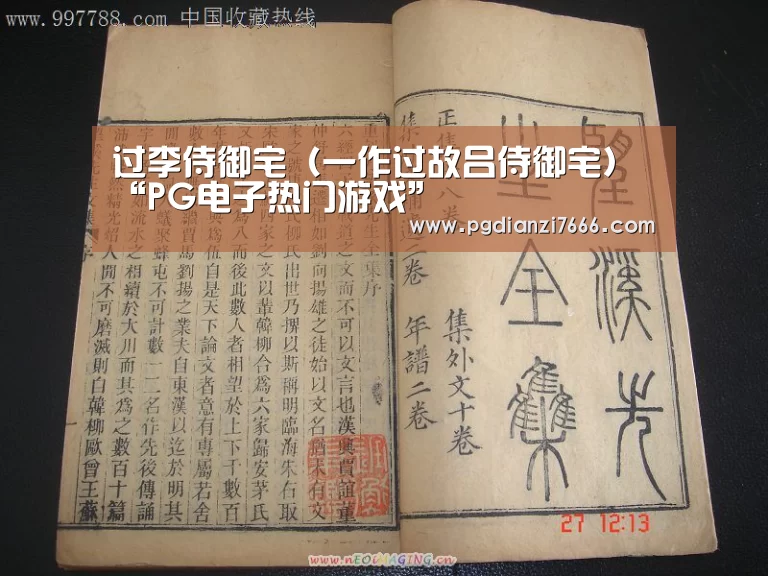 www.997788.com 中国收藏热线
过李侍御宅（一作过故吕侍御宅）
“PG电子热门游戏”
www.pgdianzi7666.com
望溪先
生全集
正集十八卷
集外文十卷
年譜二卷
六經
道之文而不可以文言也漢興賈誼董
仲
如劉向揚雄之徒始以文名猶未有文
柳氏出世乃撰以斯稱明臨海朱右取
宋
四家之文以輩韓柳合爲六家歸安茅氏
爲八而後此數人者相望於上下千數百
年
爲伍自是天下論文者意有專屬若舍
數
賈馬劉揚之業夫自東漢以迄於明其
聚蜂屯不可計數一二名作先後傳誦
宇
如流水之相續於大川而其爲之數百十篇
人間不可磨滅則自韓柳歐曾王蘇
27 12:13
www.nEOIMAGING.cn